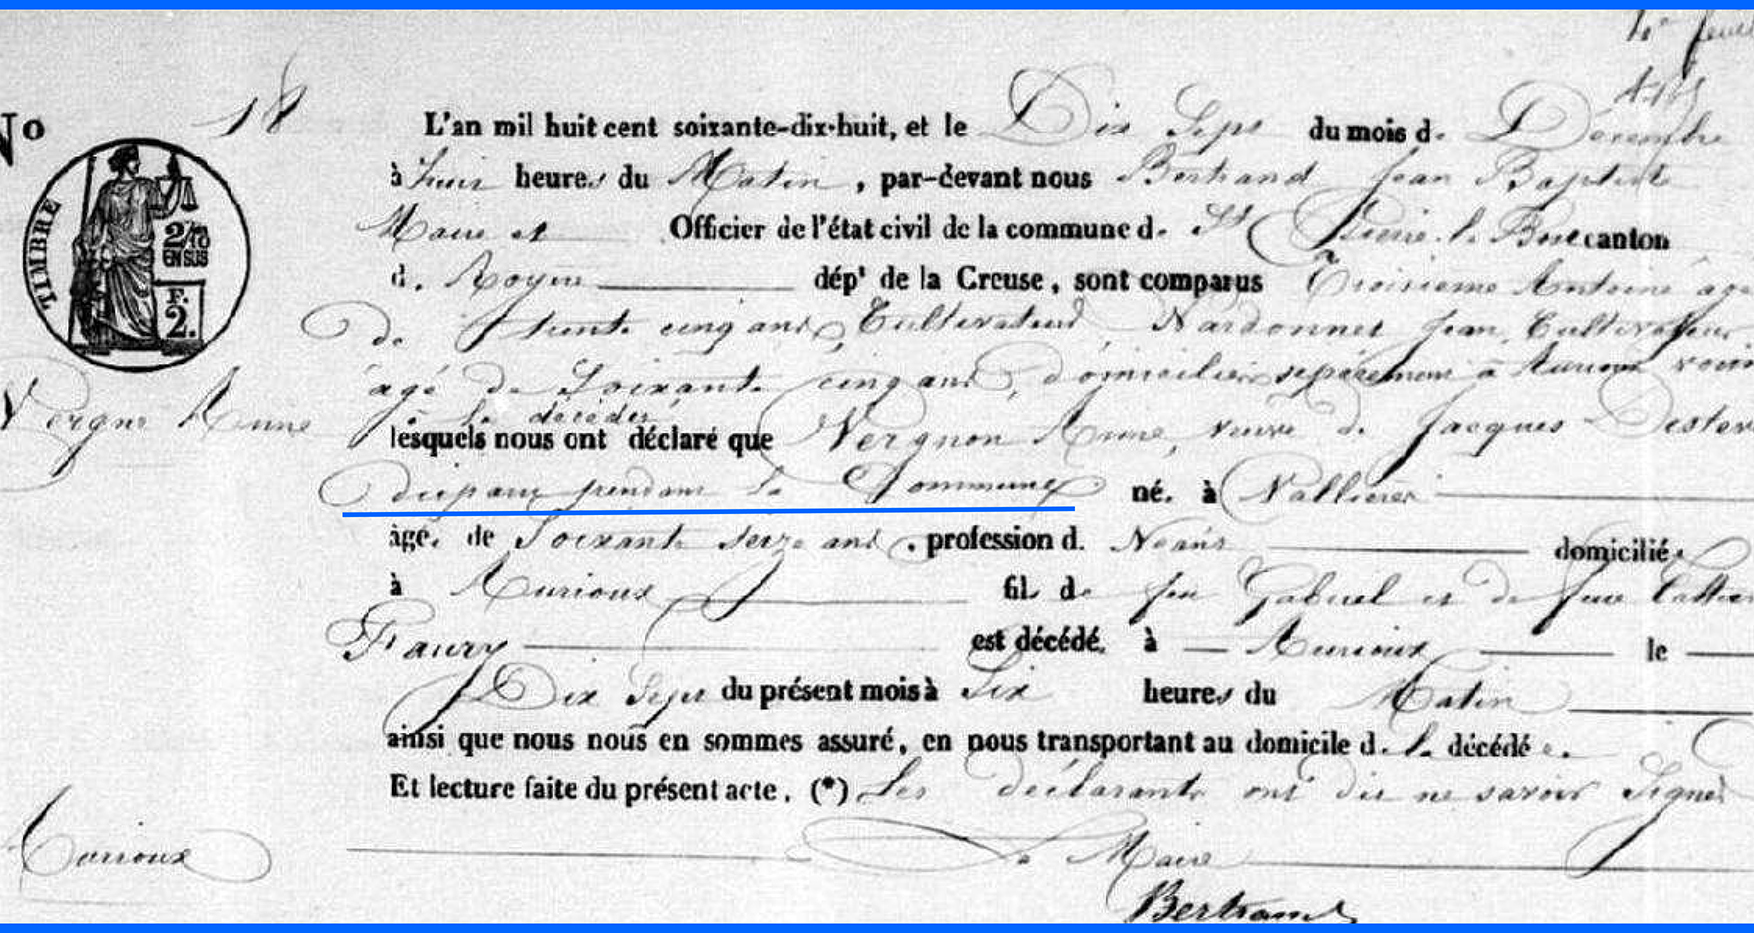 1er feuil
No 18
L'an mil huit cent soixante-dix-huit, et le Dix Sept du mois de Décembre
à huit heures du Matin, par-devant nous Bertrand Jean Baptiste
Maire et Officier de l'état civil de la commune de St Pierre le Bost canton
de Royère dépt de la Creuse, sont comparus Troisième Antoine âgé
de trente cinq ans, Cultivateur Nardonnet Jean, Cultivateur
âgé de Soixante cinq ans, domiciliés séparément à Aurioux
à la décédée
lesquels nous ont déclaré que Vergnon Anne, veuve de Jacques
disparu pendant la Commune né à Vallières
âgé de Soixante seize ans, profession de Néant domicilié
à Aurioux fil de feu Gabriel et de feue
Faury est décédé à Aurioux le
Dix Sept du présent mois à Six heures du Matin
ainsi que nous nous en sommes assuré, en nous transportant au domicile de la décédée.
Et lecture faite du présent acte, (*) Les déclarants ont dit ne savoir Signer
Le Maire
Bertrand
TIMBRE
2/10
EN SUS
F.
2.
Vergne Anne
Aurioux